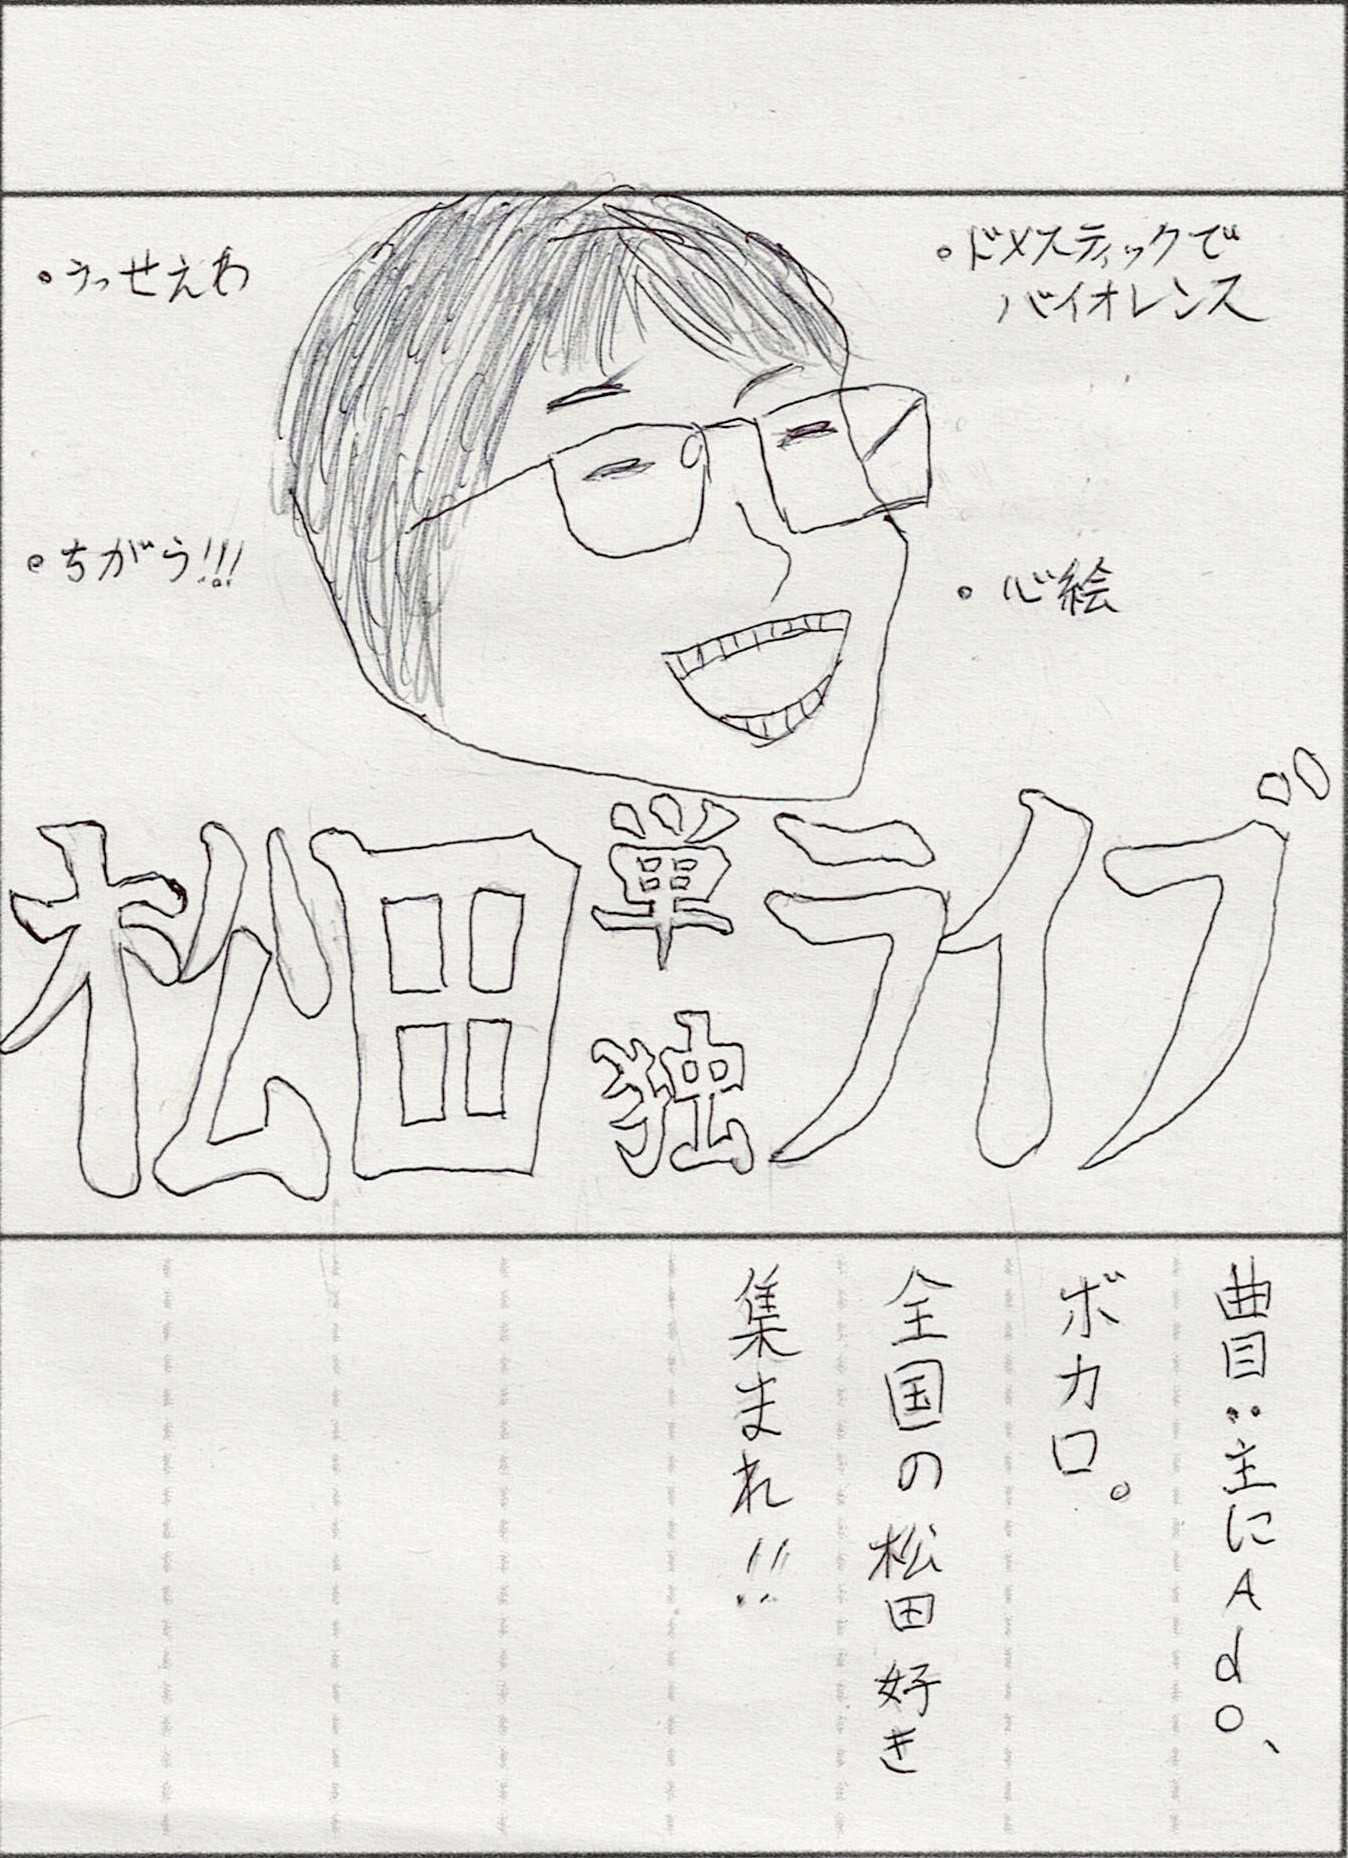 ・うっせえわ
・ドメスティックで
バイオレンス
・ちがう!!!
・心絵
松田単独ライブ
曲目:主にAdo、
ボカロ。
全国の松田好き
集まれ!!